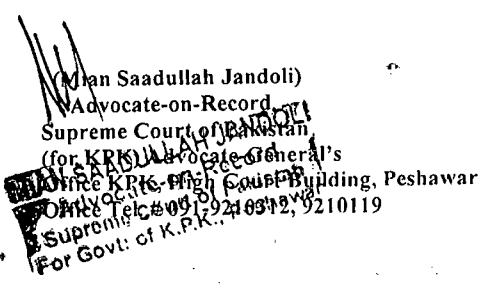 (Mian Saadullah Jandoli)
Advocate-on-Record
Supreme Court of Pakistan
(for KPK) Advocate-General's
Office KPK, High Court Building, Peshawar
Office Tel.# 091-9210312, 9210119
MIAN SAADULLAH JANDOLI
Advocate-on-Record
Supreme Court of Pakistan
For Govt: of K.P.K., Peshawar